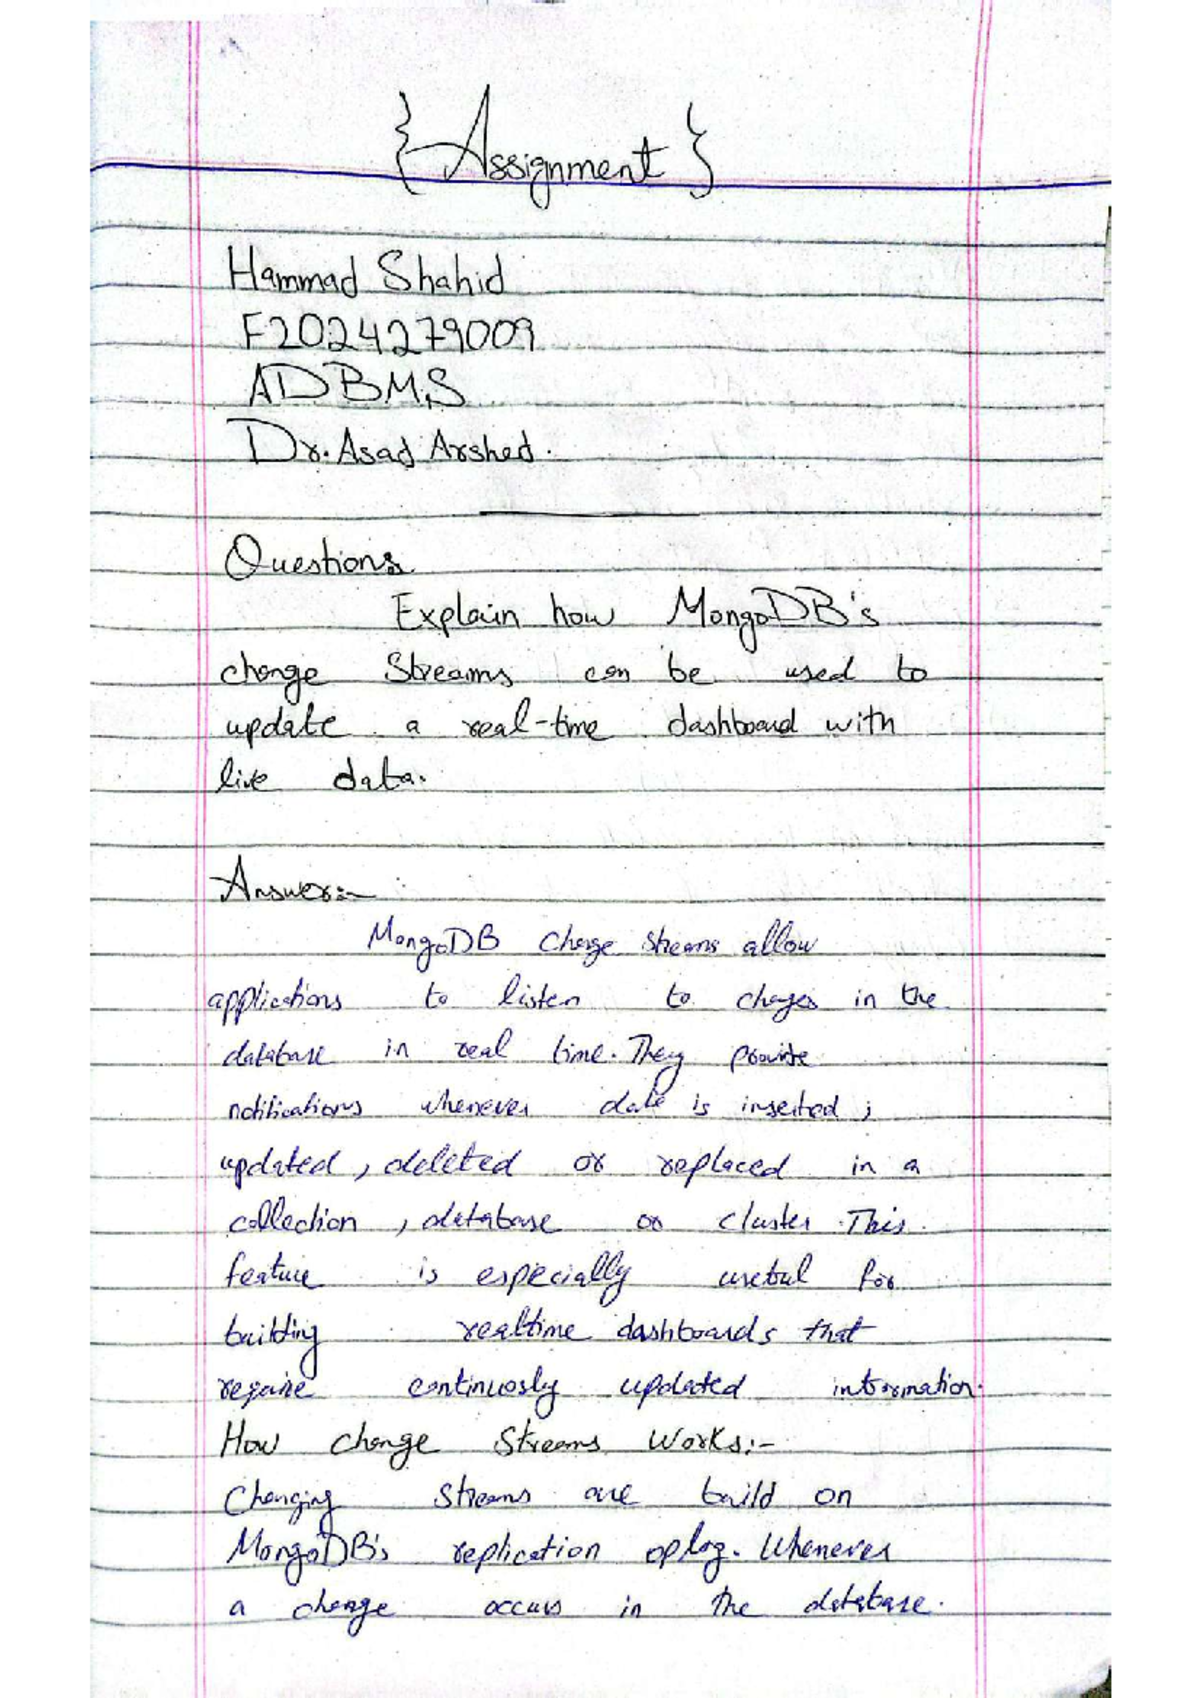 { Assignment }
Hammad Shahid
F2024279009
ADBMS
Dr. Asad Arshed.
Question:
Explain how MongoDB's
change Streams can be used to
update a real-time dashboard with
live data.
Answer:-
MongoDB Change streams allow
applications to listen to changes in the
database in real time. They provide
notifications whenever data is inserted,
updated, deleted or replaced in a
collection, database or cluster. This
feature is especially useful for
building realtime dashboards that
require continuosly updated information.
How change Streams Works:-
Changing streams are build on
MongoDB's replication oplog. Whenever
a change occurs in the database.